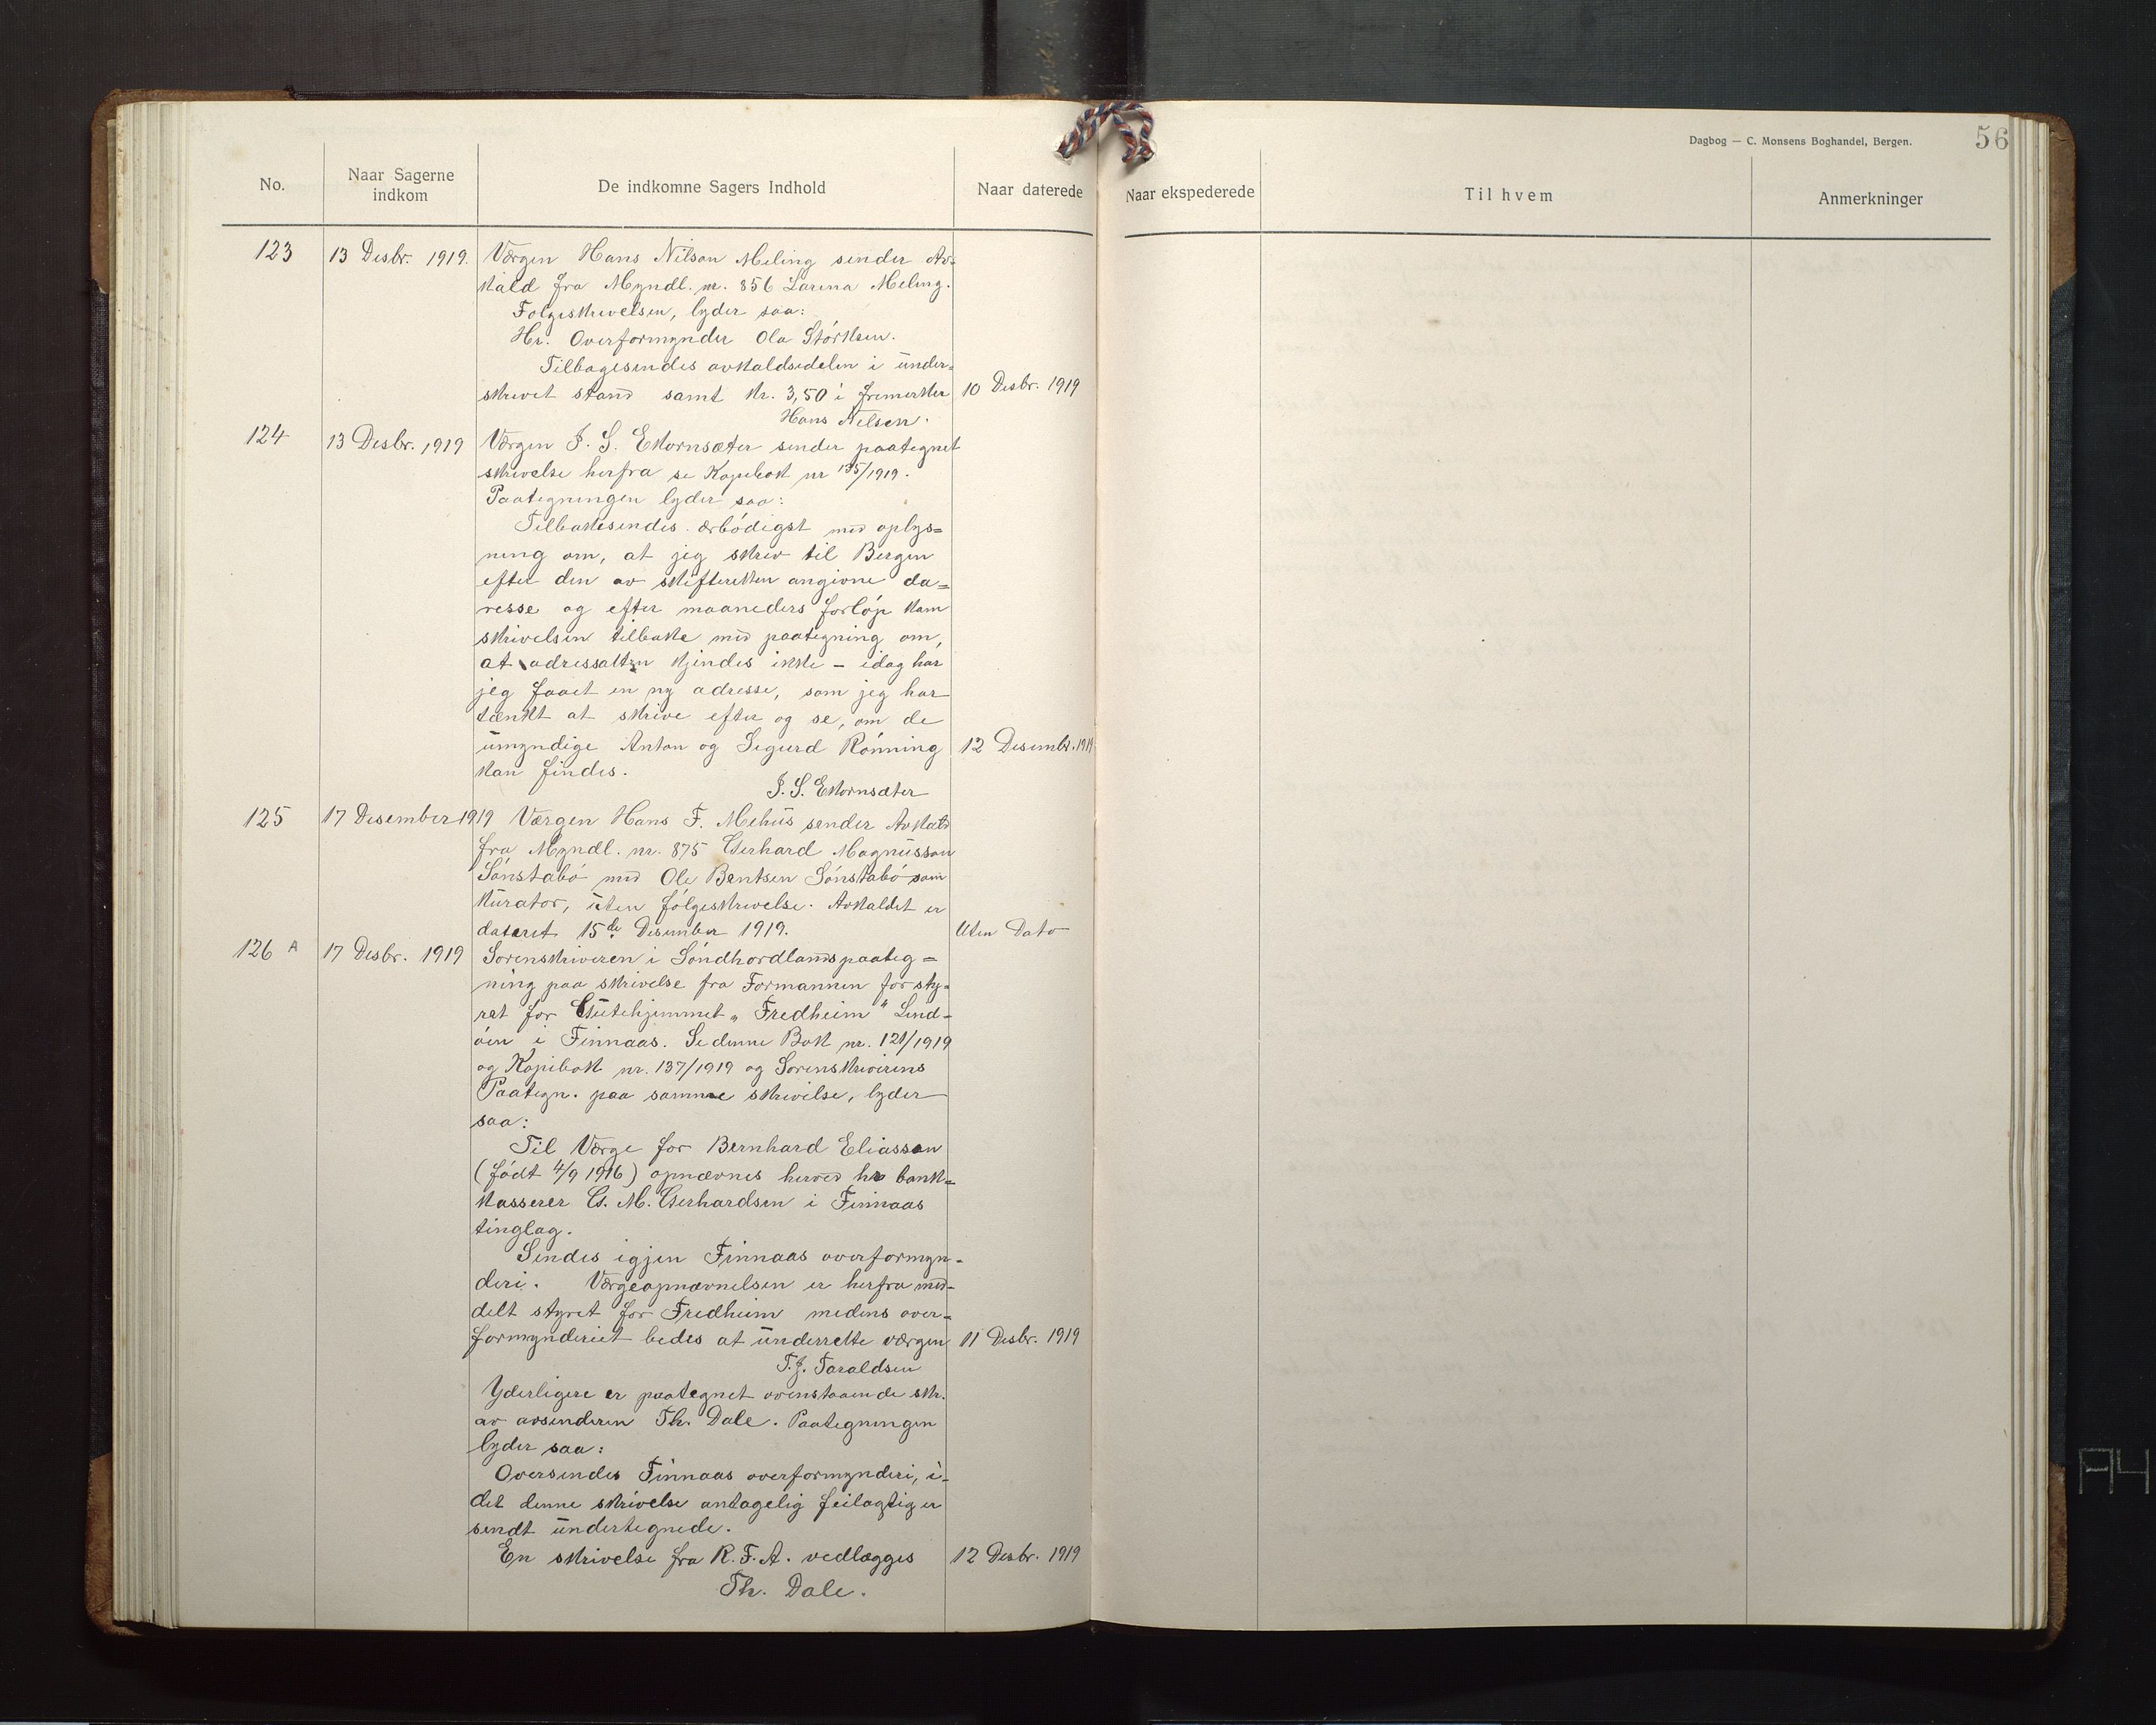 Dagbog — C. Monsens Boghandel, Bergen.
56
No.
Naar Sagerne indkom
De indkomne Sagers Indhold
Naar daterede
Naar ekspederede
Til hvem
Anmerkninger
123 13 Desbr. 1919. Værgen Hans Nilson Meling sender Av-
kald fra Myndl. nr. 856 Larina Meling.
Følgeskrivelsen, lyder saa:
Hr. Overformynder Ola Størksen.
Tilbagesendes avkaldsedelen i under-
skrevet stand samt kr. 3,50 i frimerker 10 Desbr. 1919
Hans Nelsen.
124 13 Desbr. 1919 Værgen J. S. Ekornsæter sender paategnet
skrivelse herfra se Kopibok nr 135/1919.
Paategningen lyder saa:
Tilbakesendes ærbødigst med oplys=
ning om, at jeg skrev til Bergen
efter den av skifteretten angivne da=
resse og efter maaneders forløp kam
skrivelsen tilbake med paategning om,
at adressatten kjendes ikke - idag har
jeg faaet en ny adresse, som jeg har
tænkt at skrive efter og se, om de
umyndige Anton og Sigurd Rönning 12 Desembr. 1919
kan findes.
J. S. Ekornsæter
125 17 Desember 1919 Værgen Hans F. Mehus sender Avkald
fra Myndl. nr. 875 Gerhard Magnusson
Sønstabø med Ole Bentsen Sønstabø som
kurator, uten følgeskrivelse. Avkaldet er
dateret 15de Desember 1919. Uten Dato
126 A 17 Desbr. 1919 Sorenskriveren i Søndhordlands paateg=
ning paa skrivelse fra Formannen for sty-
ret for Gutehjemmet „Fredheim" Lind-
øen i Finnaas. Se denne Bok nr. 121/1919
og Kopibok nr. 137/1919 og Sorenskriverens
Paategn. paa samme skrivelse, lyder
saa:
Til Værge for Bernhard Eliasson
(født 4/9 1916) opnævnes herved hr bank=
kasserer G. M. Gerhardsen i Finnaas
tinglag.
Sendes igjen Finnaas overformyn-
deri. Værgeopnævnelsen er herfra med-
delt styret for Fredheim medens over-
formynderiet bedes at underrette værgen 11 Desbr. 1919
T. J. Taraldsen
Yderligere er paategnet ovenstaaende skr.
av avsenderen Th. Dale. Paategningen
lyder saa:
Oversendes Finnaas overformynderi, i-
det denne skrivelse antagelig feilagtig er
sendt undertegnede.
En skrivelse fra R. F. A. vedlægges 12 Desbr. 1919
Th. Dale.